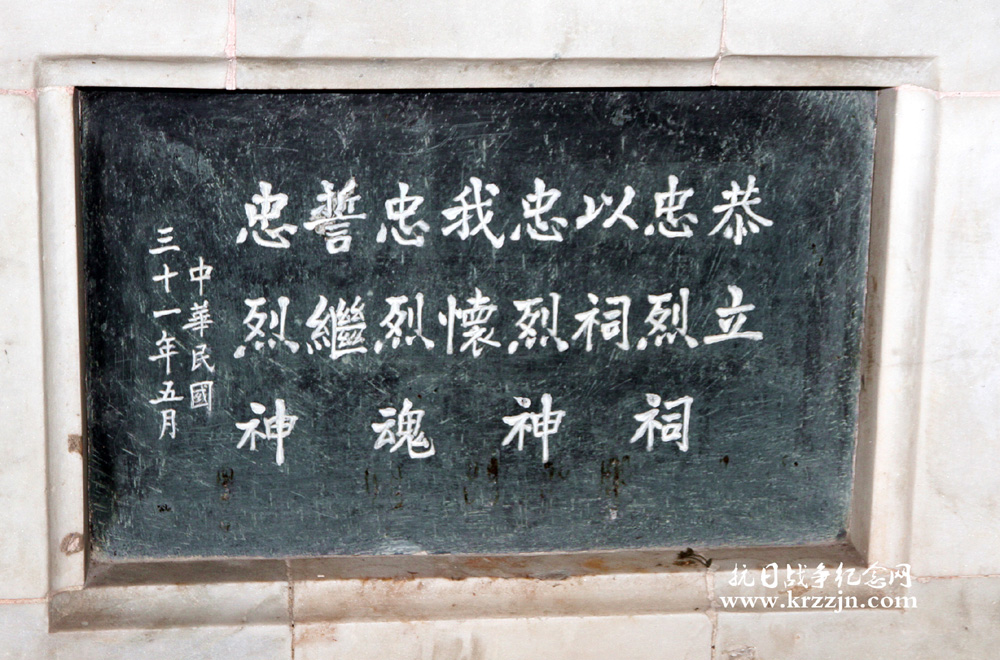 恭立
忠烈祠
以祠
忠烈神
我懷
忠烈魂
誓繼
忠烈神
中華民國
三十一年五月
抗日战争纪念网
www.krzzjn.com